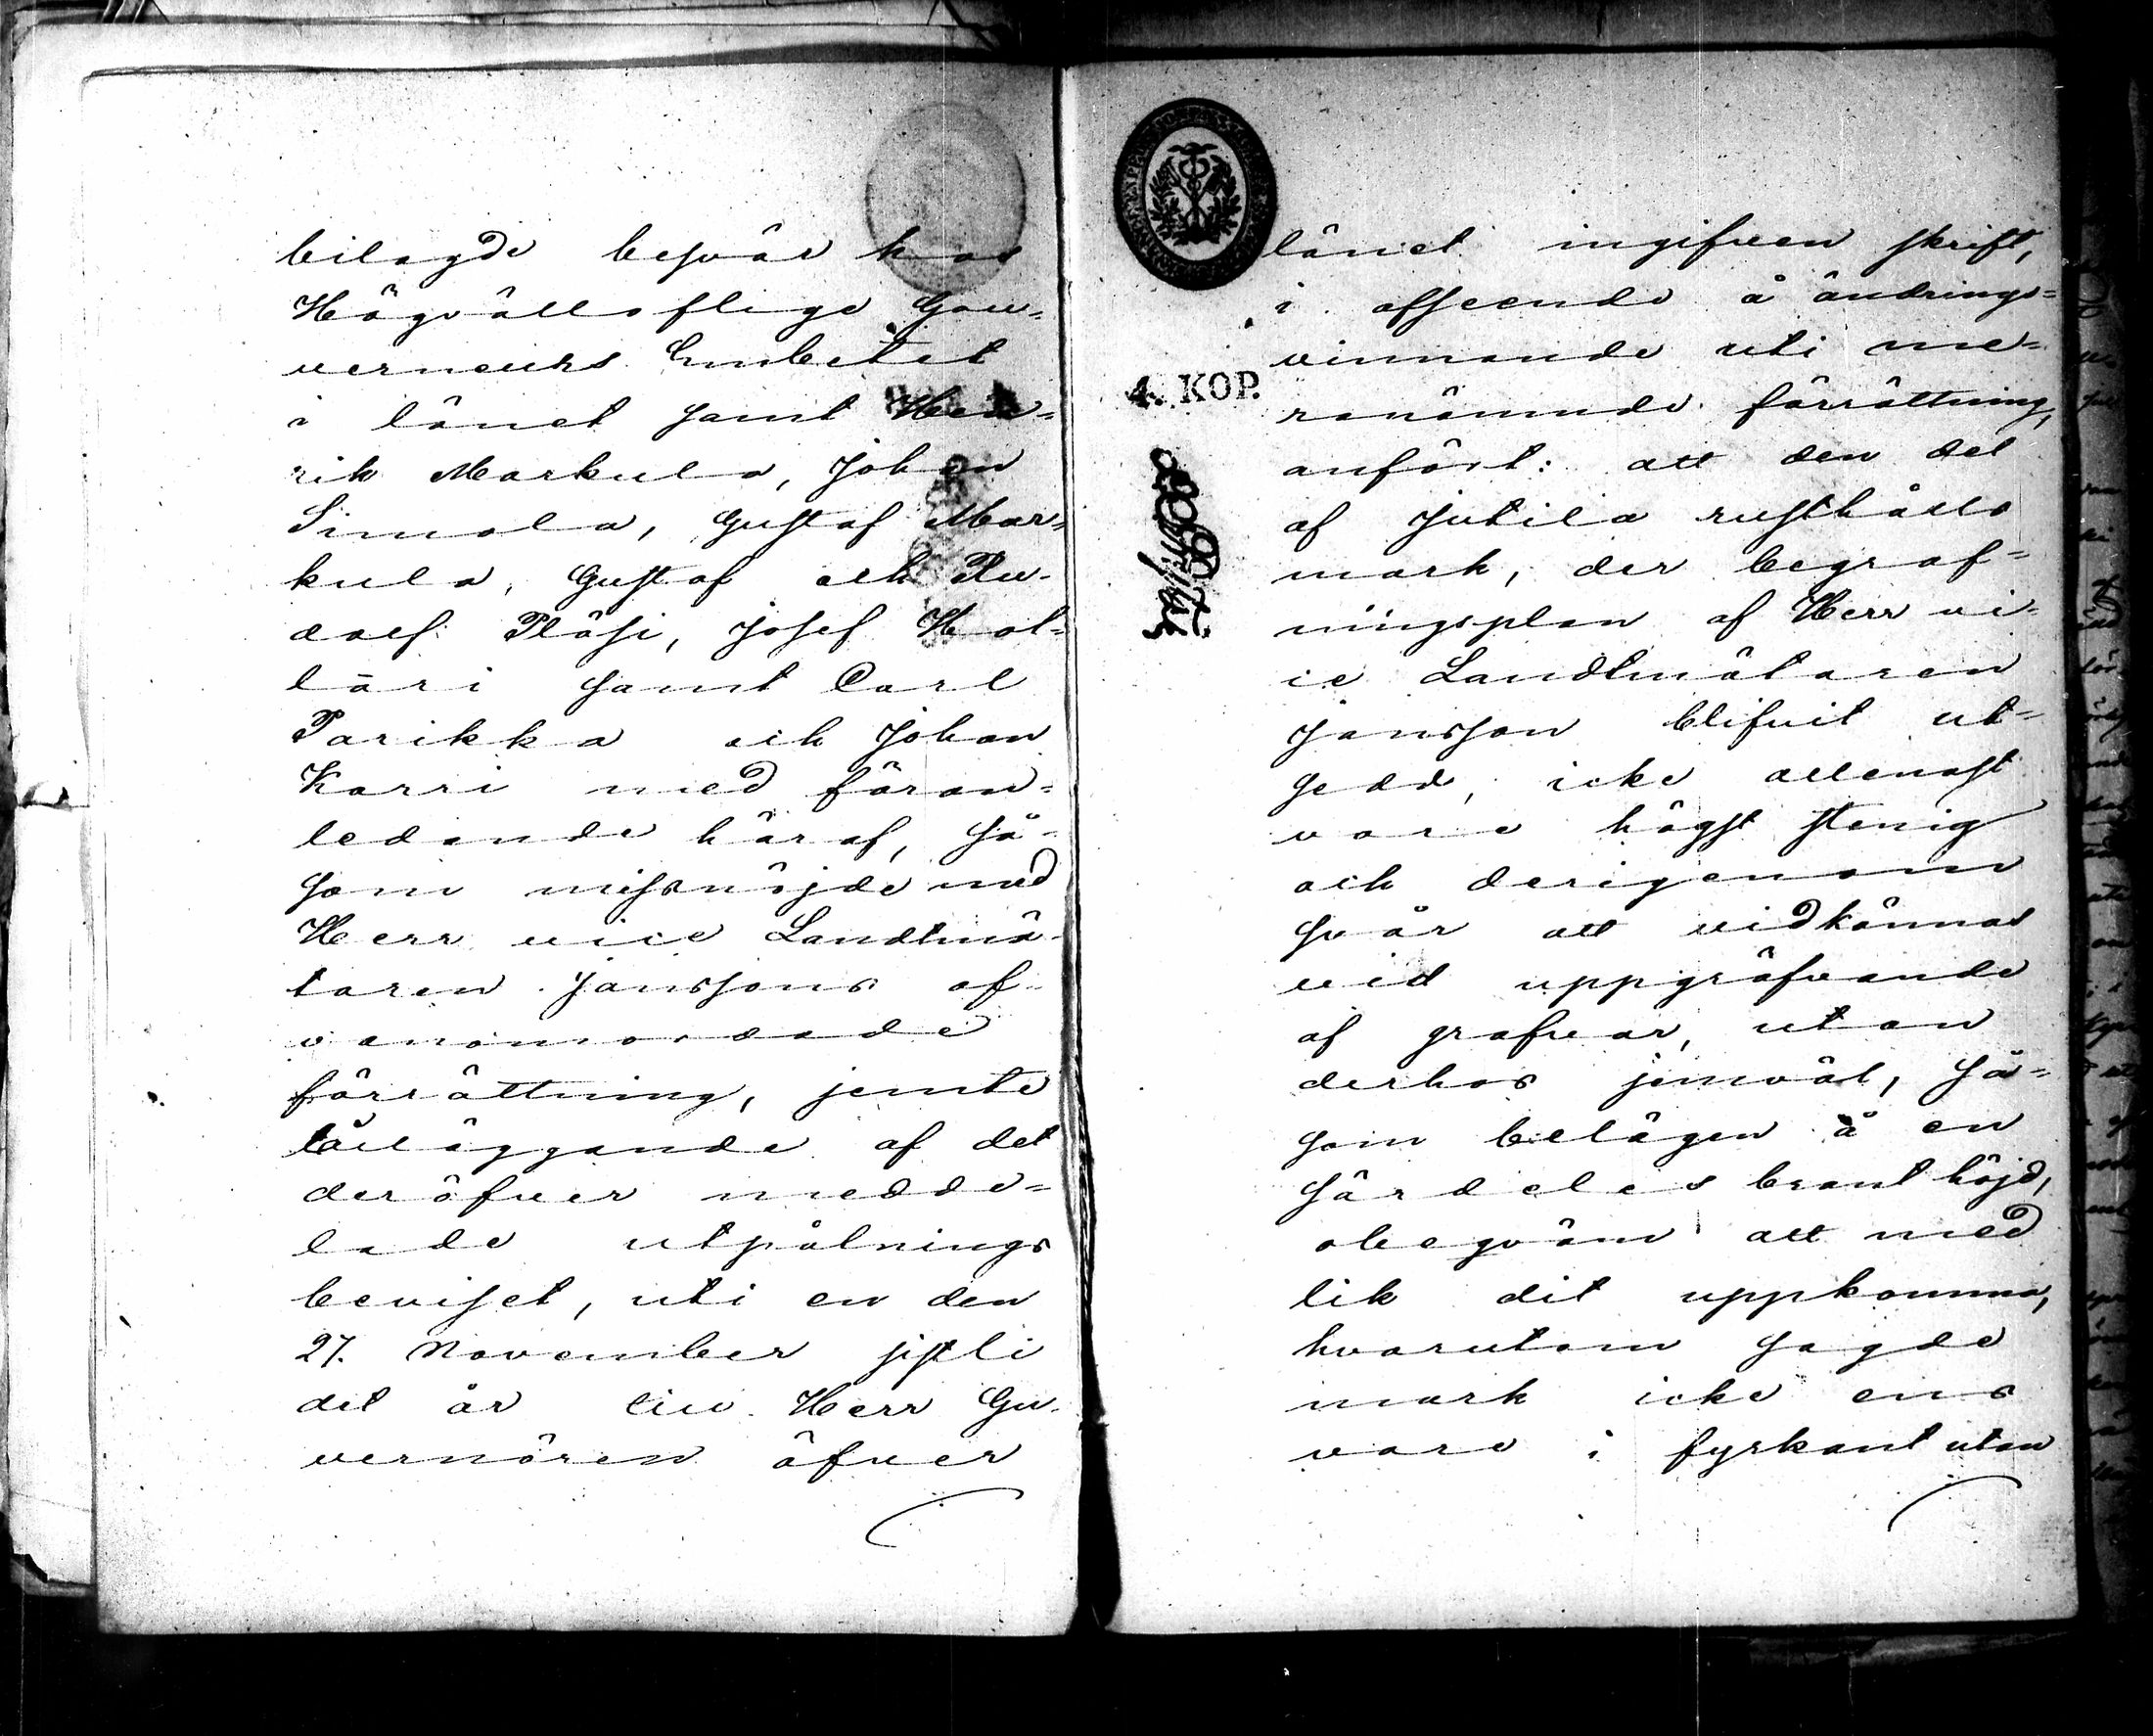 bilagde besvär hos
Högvällofliga Gou-
verneurs Embetet
i länet samt Hen-
rik Markula, Johan
Simola, Gustaf Mar-
kula, Gustaf och Ru-
dolf Pläsi, Josef Hol-
läri samt Carl
Parikka och Johan
Karri med föran-
ledande häraf, så-
som missnöjde med
Herr vice Landtmä-
taren Janssons of-
vananmordade
förrättning, jemte
tilläggande af det
deröfver medde-
lade utpålnings
beviset, uti en den
27. November sistli
det år till Herr Gu-
vernören öfver
länet ingifven skrift,
i afseende å ändrings-
vinnande uti me-
ranämnde förrättning,
anfört: att den del
af Jutila rusthålls
mark, der begraf-
ningsplan af Herr vi-
ce Landtmätaren
Jansson blifvit ut-
sedd, icke allenast
vore högst stenig
och derigenom
svår att vidkännas
vid uppgräfvande
af grafvar, utan
derhos jemväl, så-
som belägen å en
särdeles brant höjd,
obeqväm att med
lik dit uppkomma,
hvarutom sagde
mark icke ens
vore i fyrkant utan
4. KOP.